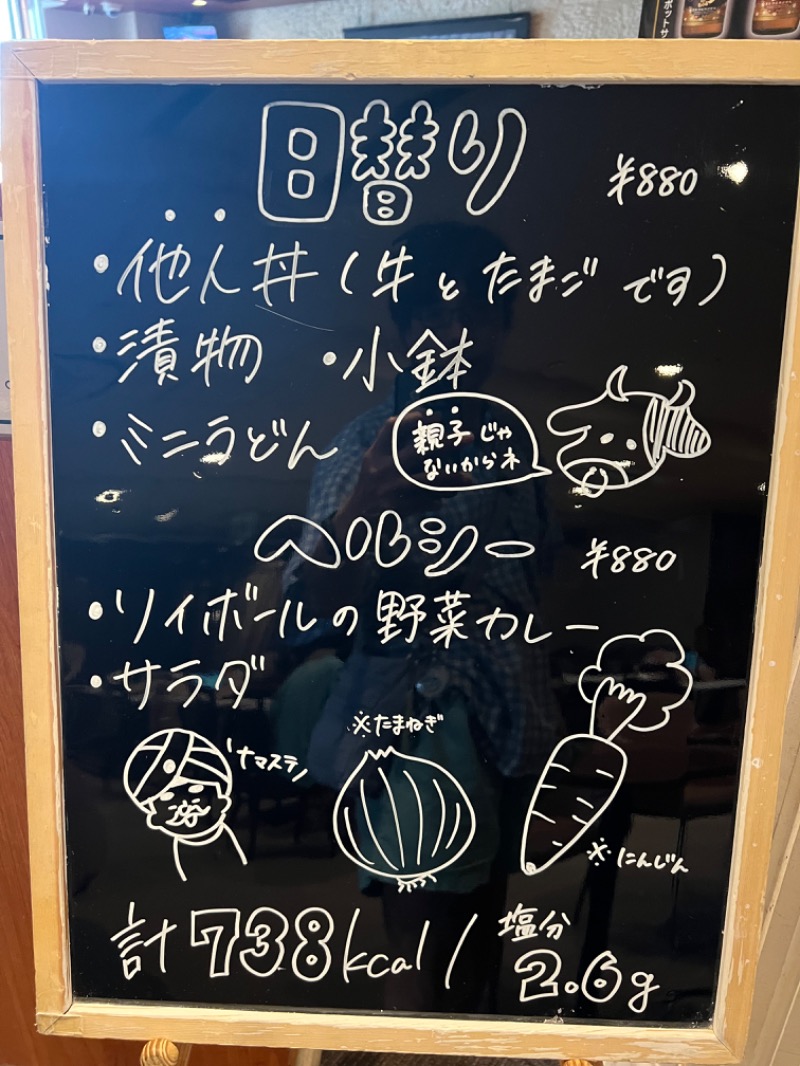 ポットサ
日替り ¥880
・他人丼(牛とたまごです)
・漬物 ・小鉢
・ミニうどん
親子じゃ
ないからネ
ヘルシー ¥880
・ソイボールの野菜カレー
・サラダ
ナマステ
※たまねぎ
※にんじん
計738kcal/塩分2.6g